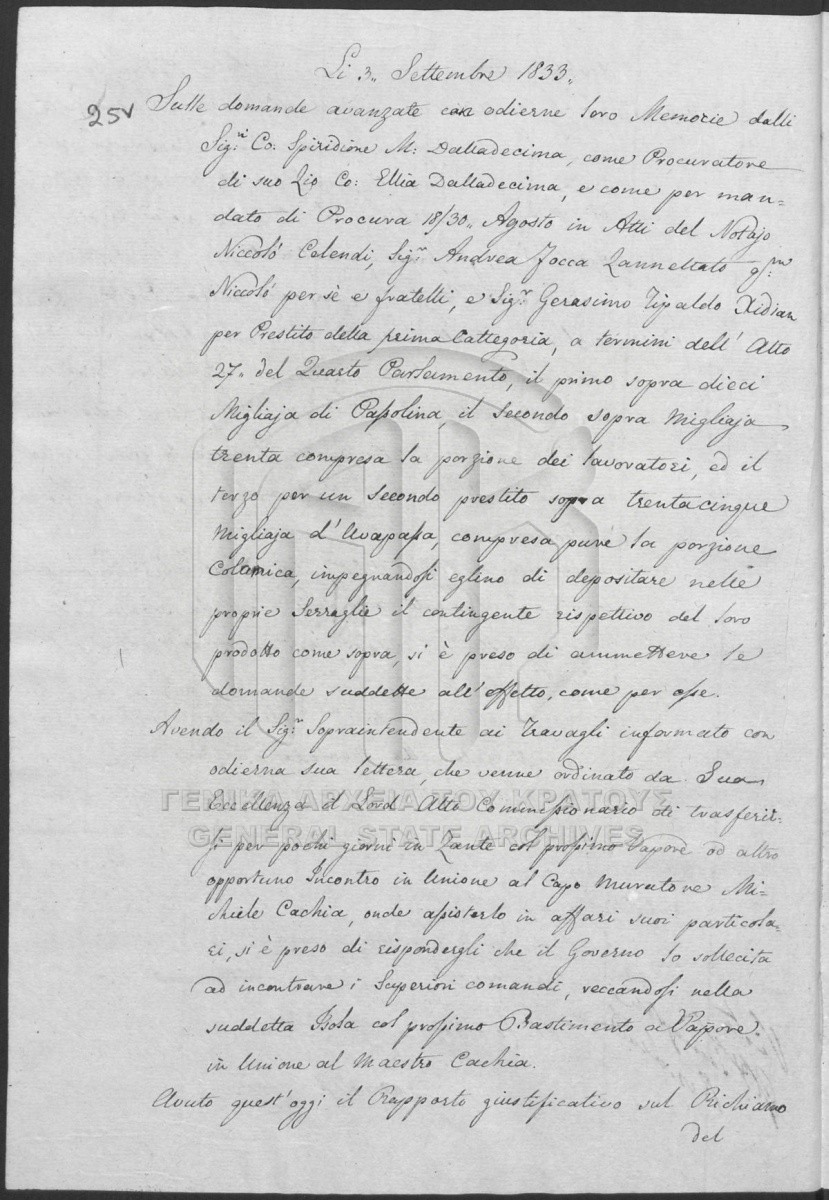 Li 3,, Settembre 1833,,
25v
Sulle domande avanzate con odierne loro Memorie dalli
Sig.ri Co: Spiridione M: Dalladecima, come Procuratore
di suo Zio Co: Ellia Dalladecima, e come per man=
dato di Procura 18/30,, Agosto in Atti del Notajo
Niccolò Calendi, Sig.r Andrea Jocca Zannettato q.m
Niccolò per sè e fratelli, e Sig.r Gerasimo Tipaldo Xidian
per Prestito della prima Cattegoria, a termini dell' Atto
27,, del Quarto Parlamento, il primo sopra dieci
Migliaja di Passolina, il secondo sopra Migliaja
trenta compresa la porzione dei lavoratori, ed il
terzo per un secondo prestito sopra trentacinque
Migliaja d'Uvapassa, compresa pure la porzione
Colonica, impegnandosi eglino di depositare nelle
proprie Serraglie il contingente rispettivo del loro
prodotto come sopra, si è preso di ammettere le
domande suddette all'effetto, come per esse.
Avendo il Sig.r Sopraintendente ai Travagli informato con
odierna sua lettera, che venne ordinato da Sua
Eccellenza il Lord Alto Commissionario di trasferir=
si per pochi giorni in Zante col prossimo Vapore od altro
opportuno Incontro in Unione al Capo Muratore Mi=
chiele Cachia, onde assisterlo in affari suoi particola=
ri, si è preso di rispondergli che il Governo lo sollecita
ad incontrare i Superiori comandi, reccandosi nella
suddetta Isola col prossimo Bastimento a Vapore
in Unione al Maestro Cachia.
Avuto quest'oggi il Rapporto giustificativo sul Richiamo
del
ΓΕΝΙΚΑ ΑΡΧΕΙΑ ΤΟΥ ΚΡΑΤΟΥΣ
GENERAL STATE ARCHIVES